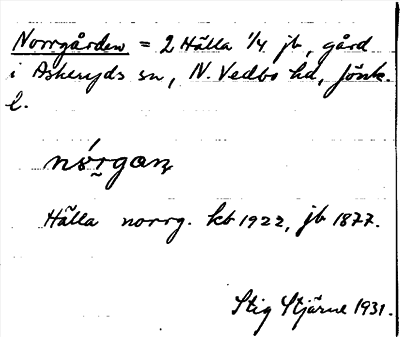 Norrgården = 2 Hälla 1/4 jb, gård
i Askeryds sn, N. Vedbo hd, Jönk.
l.
nórgaṇ
Hälla norrg. kb 1922, jb 1877.
Stig Stjärne 1931.